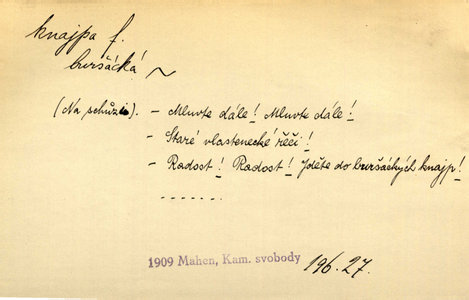 knajpa f.
buršácká ~
(Na schůzi). – Mluvte dále! Mluvte dále!
– Staré vlastenecké řeči!
– Radost! Radost! Jděte do buršáckých knajp!
.......
1909 Mahen, Kam. svobody 196.27.